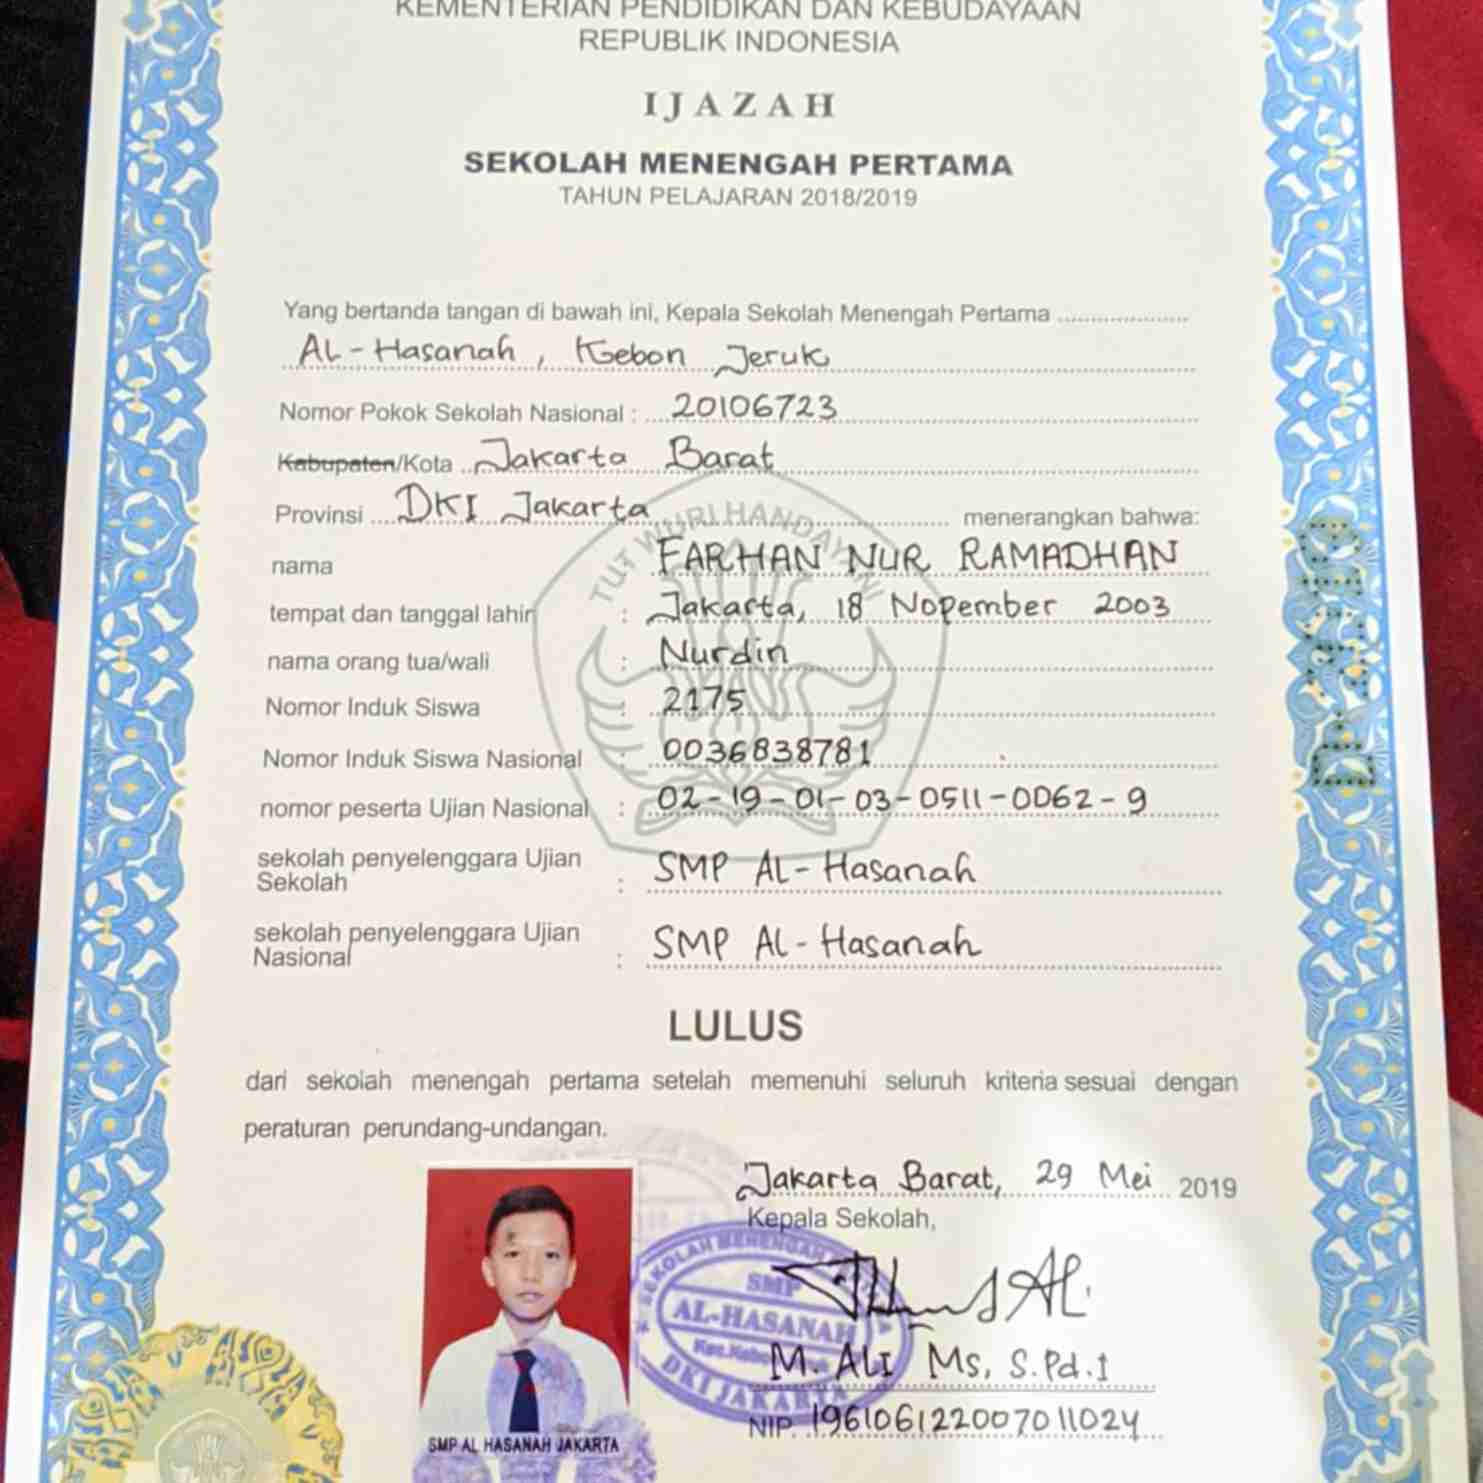 KEMENTERIAN PENDIDIKAN DAN KEBUDAYAAN
REPUBLIK INDONESIA
IJAZAH
SEKOLAH MENENGAH PERTAMA
TAHUN PELAJARAN 2018/2019
Yang bertanda tangan di bawah ini, Kepala Sekolah Menengah Pertama ....................
AL-Hasanah, Kebon Jeruk
Nomor Pokok Sekolah Nasional : 20106723
Kabupaten/Kota Jakarta Barat
Provinsi DKI Jakarta menerangkan bahwa:
TUT WURI HANDAYANI
nama FARHAN NUR RAMADHAN
tempat dan tanggal lahir : Jakarta, 18 Nopember 2003
nama orang tua/wali : Nurdin
Nomor Induk Siswa : 2175
Nomor Induk Siswa Nasional : 0036838781
nomor peserta Ujian Nasional : 02-19-01-03-0511-0062-9
sekolah penyelenggara Ujian
Sekolah : SMP AL-Hasanah
sekolah penyelenggara Ujian
Nasional : SMP AL-Hasanah
LULUS
dari sekolah menengah pertama setelah memenuhi seluruh kriteria sesuai dengan
peraturan perundang-undangan.
Jakarta Barat, 29 Mei 2019
Kepala Sekolah,
SEKOLAH MENENGAH
SMP
AL-HASANAH
DKI JAKARTA
M. ALI Ms, S.Pd.I
NIP. 196106122007011024
SMP AL HASANAH JAKARTA